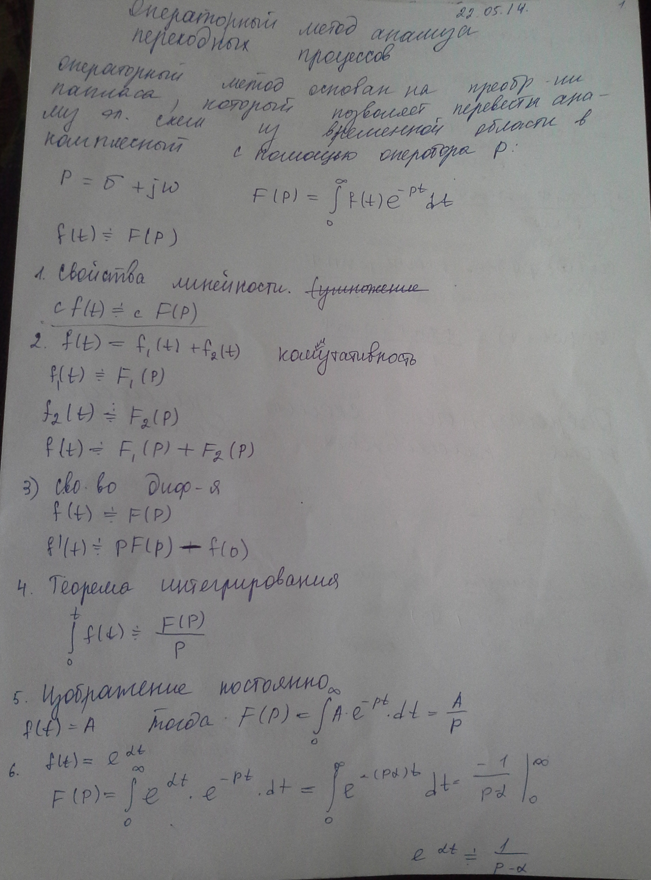 Операторный метод анализа 22.05.14. 1
переходных процессов
операторный метод основан на преобр-нии
Лапласа, который позволяет перевести ана-
му эл. схем из временной области в
комплесный с помощью оператора p:
P = σ + jω F(P) = ∫₀^∞ f(t) e^{-pt} dt
f(t) ≓ F(P)
1. Свойства линейности. (умножение
c f(t) ≓ c F(P)
2. f(t) = f₁(t) + f₂(t) коммутативность
f₁(t) ≓ F₁(P)
f₂(t) ≓ F₂(P)
f(t) ≓ F₁(P) + F₂(P)
3) сво-во диф-я
f(t) ≓ F(P)
f'(t) ≓ pF(p) - f(0)
4. Теорема интегрирования
∫₀^t f(t) ≓ F(P)/P
5. Изображение постоянно
f(t) = A Тогда F(P) = ∫₀^∞ A·e^{-pt}·dt = A/p
6. f(t) = e^{αt}
F(P) = ∫₀^∞ e^{αt}·e^{-pt}·dt = ∫₀^∞ e^{-(pα)t} dt = -1/pα |₀^∞
e^{αt} ≓ 1/p-α